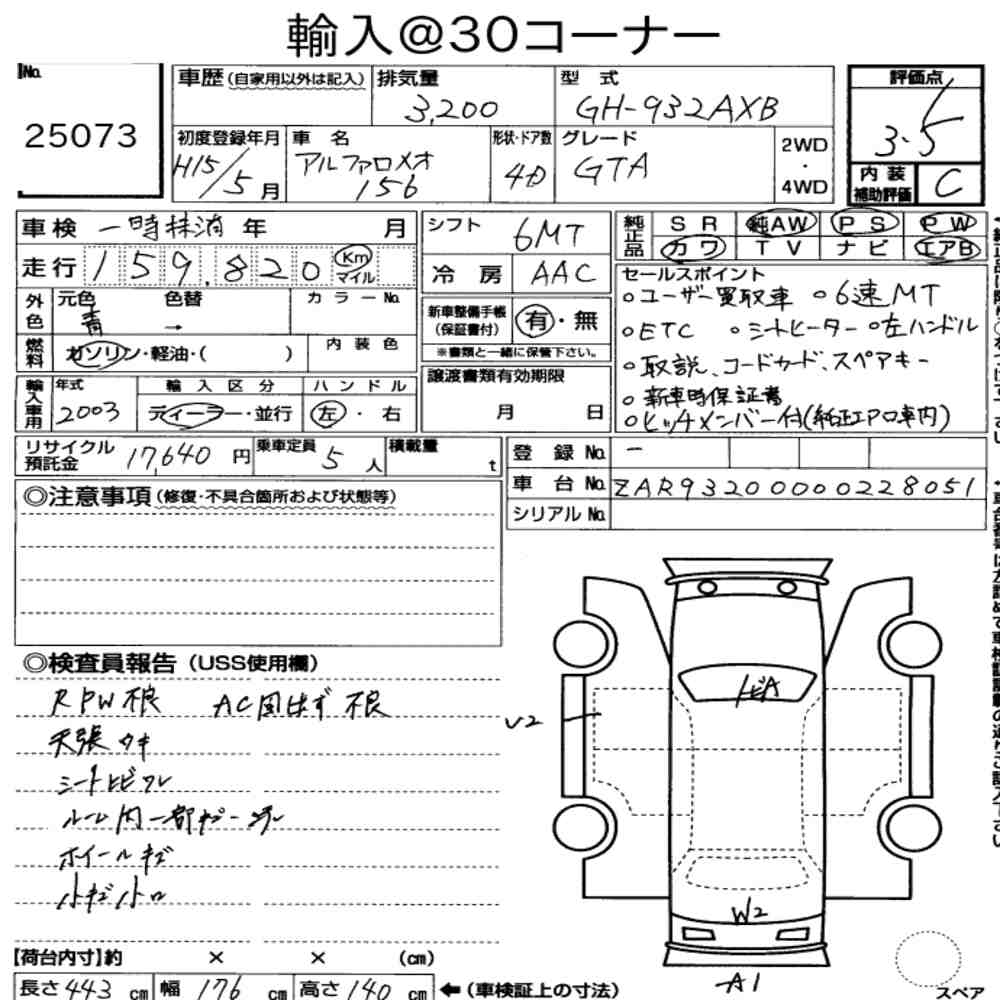 輸入@30コーナー
No.
25073
車歴(自家用以外は記入)
排気量
3,200
型 式
GH-932AXB
評価点
3.5
初度登録年月
H15/5月
車 名
アルファロメオ
156
形状・ドア数
4D
グレード
GTA
2WD
・
4WD
内装
補助評価
C
車検 一時抹消 年 月
走行 159,820 Km
マイル
シフト 6MT
冷房 AAC
純正品
SR 純AW PS PW
カワ TV ナビ エアB
外色
元色 色替
青 →
カラーNo.
燃料
ガソリン・軽油・( )
内装色
新車整備手帳
(保証書付)
有・無
※書類と一緒に保管下さい。
輸入車用
年式
2003
輸入区分
ディーラー・並行
ハンドル
左・右
譲渡書類有効期限
月 日
セールスポイント
○ユーザー買取車 ○6速MT
○ETC ○シートヒーター ○左ハンドル
○取説、コードカード、スペアキー
○新車時保証書
○ヒッチメンバー付(純正エアロ車内)
リサイクル
預託金
17,640円
乗車定員 5人
積載量 t
登録No. -
車台No. ZAR93200000228051
シリアルNo.
◎注意事項(修復・不具合箇所および状態等)
◎検査員報告(USS使用欄)
RPW不良 AC固はず不良
天張ウキ
シートヒビワレ
ルーム内一部キズ
ホイールキズ
小キズ小凹
トビA
U2
W2
A1
【荷台内寸】約 × × (cm)
長さ443cm 幅176cm 高さ140cm ←(車検証上の寸法)
スペア